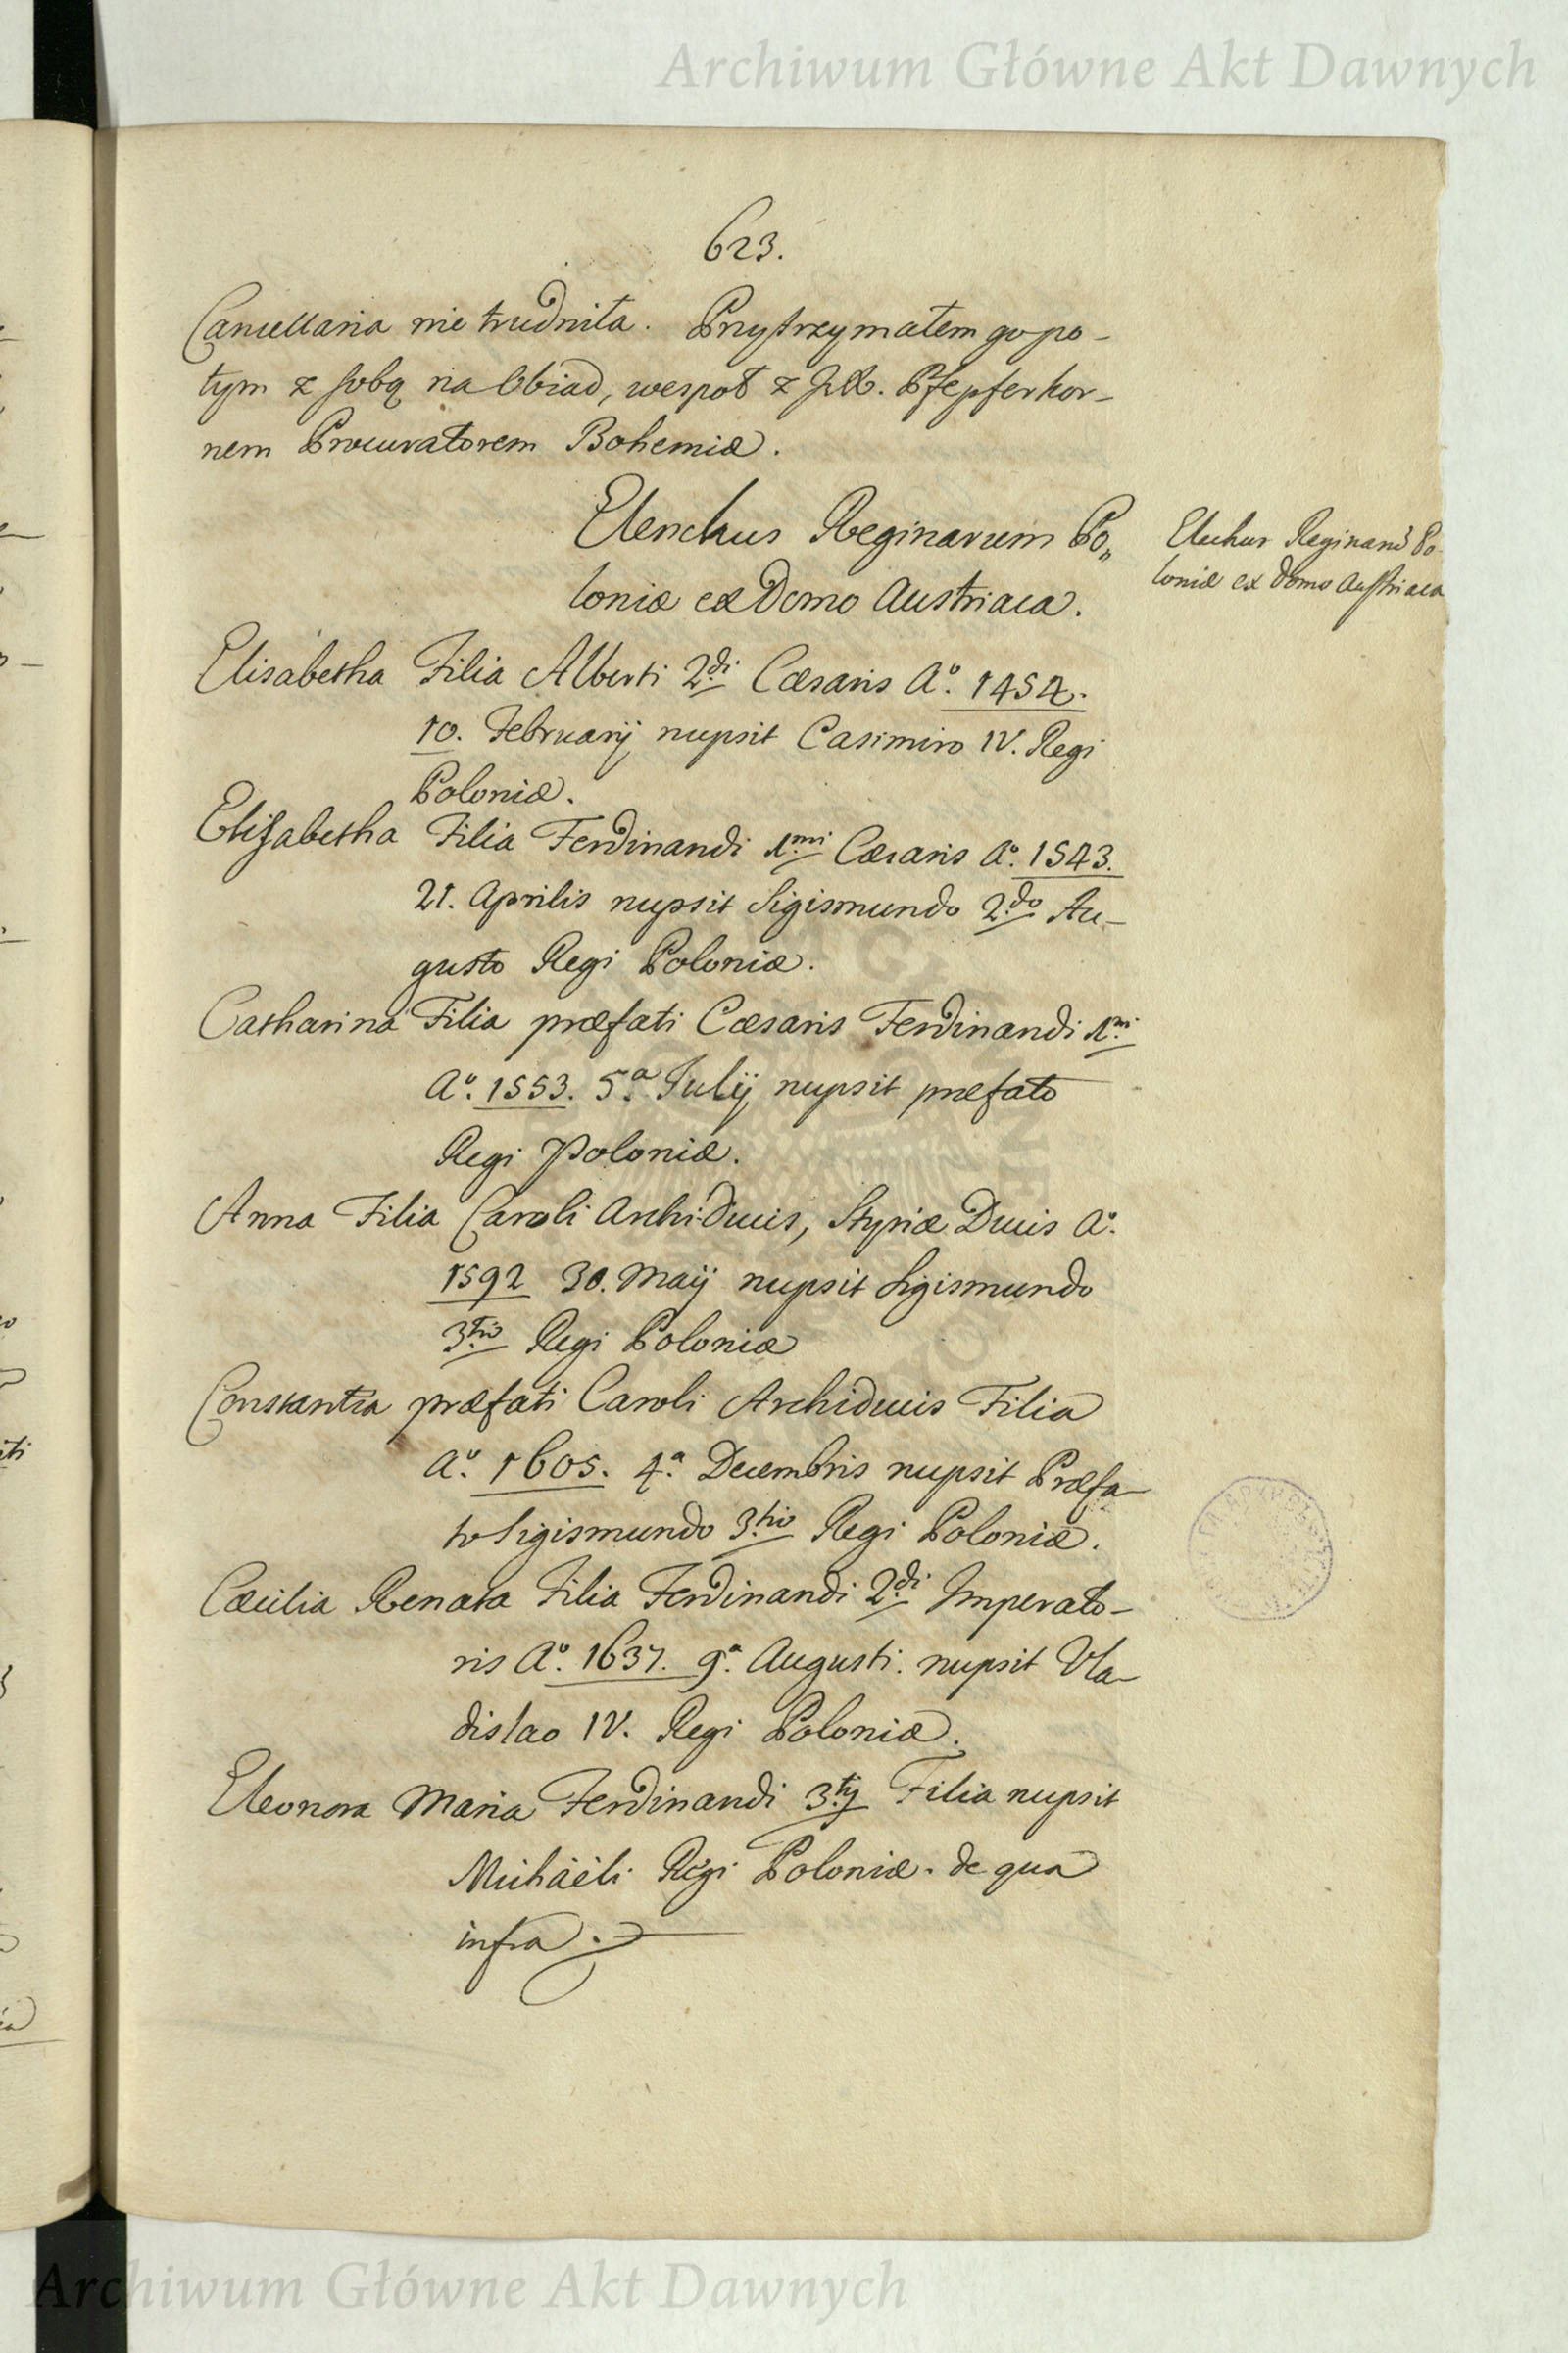 Archiwum Główne Akt Dawnych
623.
Cancellaria nie trudniła. Przytrzymałem go po-
tym z sobą na Obiad, wespoł z Pfepferkor-
nem Procuratorem Bohemiæ.
Elenchus Reginarum Po„
loniæ ex Domo Austriaca.
Elechus Reginarũ Po-
loniæ ex Domo Austriaca
Elisabetha Filia Alberti 2di Cæsaris Aº. 1454.
10. Februarij nupsit Casimiro IV. Regi
Poloniæ.
Elisabetha Filia Ferdinandi 1mi Cæsaris Aº. 1543.
21. Aprilis nupsit Sigismundo 2do Au-
gusto Regi Poloniæ.
Catharina Filia præfati Cæsaris Ferdinandi 1mi
Aº. 1553. 5.a Julij nupsit præfato
Regi Poloniæ.
Anna Filia Caroli Archi-Ducis, Styriæ Ducis Aº.
1592 30. Maij nupsit Sigismundo
3tio Regi Poloniæ
Constantia præfati Caroli Archiducis Filia
Aº. 1605. 4.a Decembris nupsit Præfa-
to Sigismundo 3tio Regi Poloniæ.
Cæcilia Renata Filia Ferdinandi 2di Imperato-
ris Aº. 1637. 9.a Augusti. nupsit Vla-
dislao IV. Regi Poloniæ.
Eleonora Maria Ferdinandi 3tij Filia nupsit
Michäeli Regi Poloniæ. de qua
infra.
Archiwum Główne Akt Dawnych